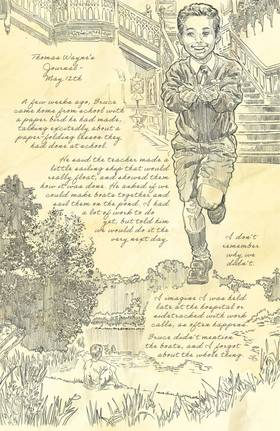 Thomas Wayne's
Journal -
May 12th
A few weeks ago, Bruce
came home from school with
a paper bird he had made,
talking excitedly about a
paper-folding lesson they
had done at school.
He said the teacher made a
little sailing ship that would
really float, and showed them
how it was done. He asked if we
could make boats together and
sail them on the pond. I had
a lot of work to do
yet, but told him
we would do it the
very next day.
I don't
remember
why we
didn't.
I imagine I was held
late at the hospital or
sidetracked with work
calls, as often happens.
Bruce didn't mention
the boats, and I forgot
about the whole thing.